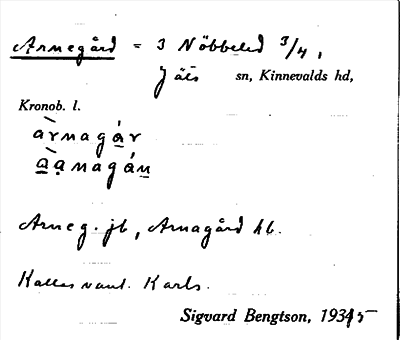 Arnegård = 3 Nöbbeled 3/4,
Jäts sn, Kinnevalds hd,
Kronob. l.
àrnagár
a̱ạnagán
Arneg. jb, Arnagård hb.
Kallas vanl. Karls.
Sigvard Bengtson, 1935